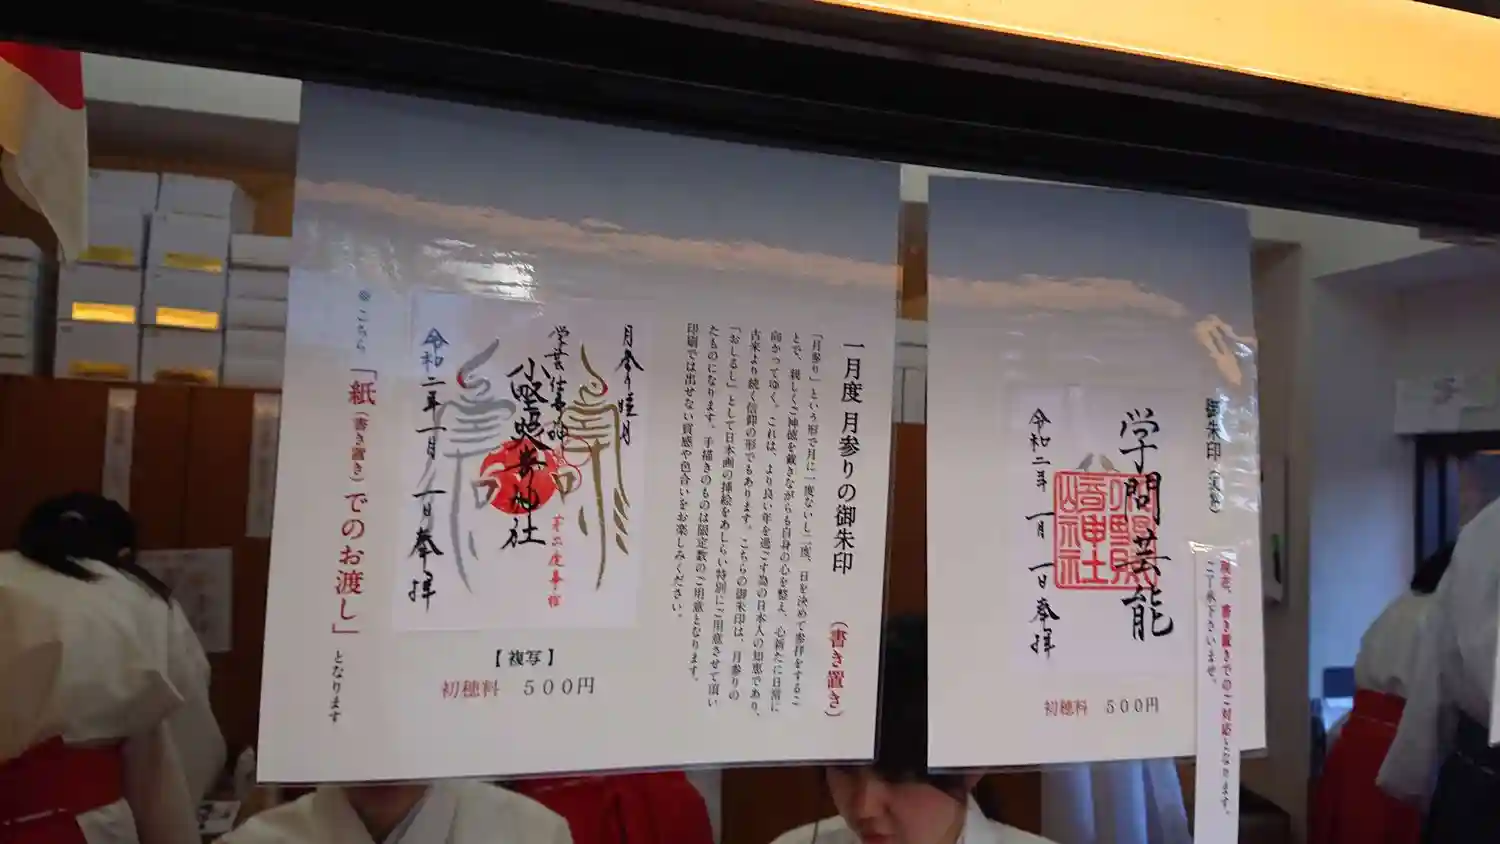 御朱印（通常）
現在、書き置きでのご対応となります。
ご了承下さいませ。
学問芸能
小野照
崎神社
令和二年一月一日奉拝
初穂料　５００円
一月度 月参りの御朱印（書き置き）
「月参り」という形で月に一度ないし二度、日を決めて参拝をするこ
とで、親しくご神徳を戴きながらも自身の心を整え、心新たに日常に
向かってゆく。これは、より良い年を過ごす為の日本人の知恵であり、
古来より続く信仰の形でもあります。こちらの御朱印は、月参りの
「おしるし」として日本画の挿絵をあしらい特別にご用意させて頂い
たものになります。手描きのものは限定数のご用意となります。
印刷では出せない質感や色合いをお楽しみください。
月参り睦月
小野照崎神社
令和二年一月一日奉拝
【複写】
初穂料　５００円
※こちら「紙（書き置き）でのお渡し」となります